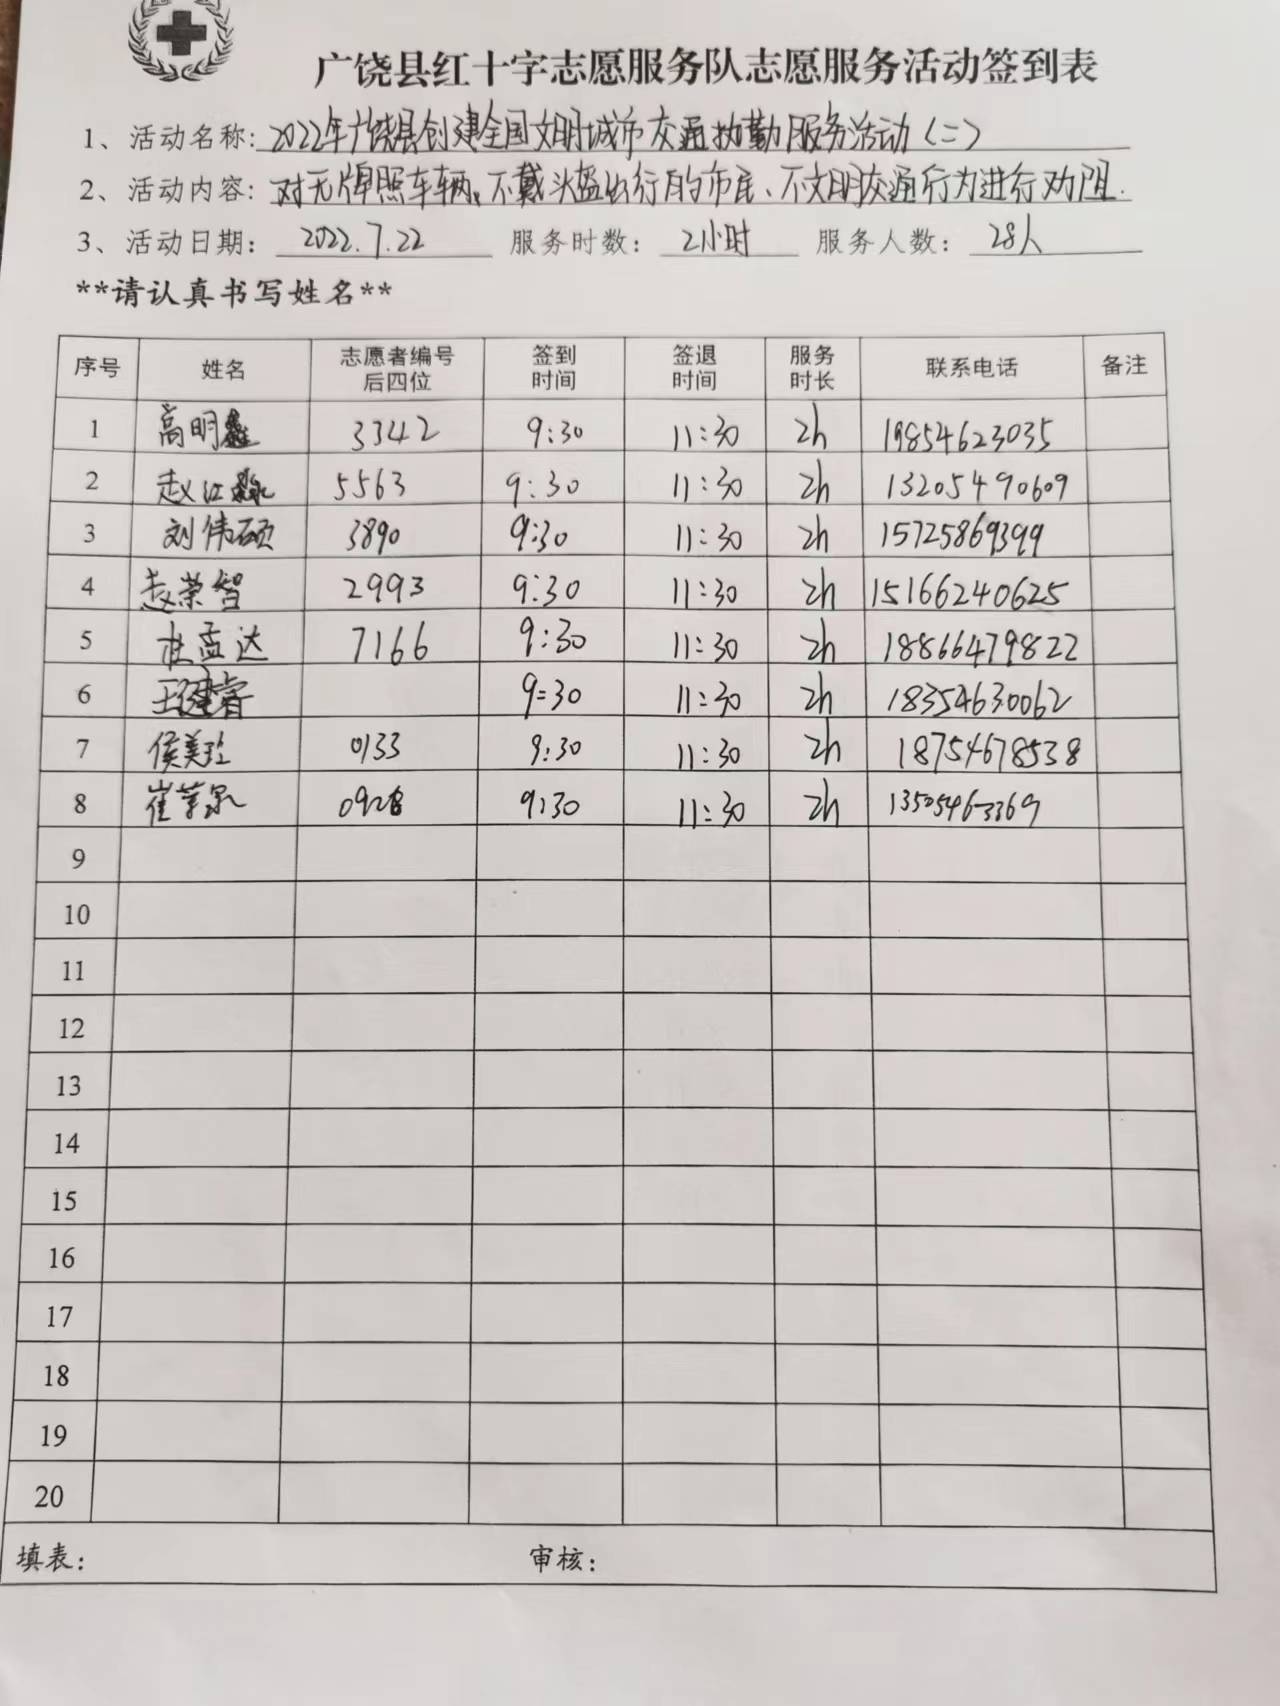 广饶县红十字志愿服务队志愿服务活动签到表
1、活动名称: 2022年广饶县创建全国文明城市交通执勤服务活动(二)
2、活动内容: 对无牌照车辆、不戴头盔出行的市民、不文明交通行为进行劝阻.
3、活动日期: 2022.7.22 服务时数: 2小时 服务人数: 28人
**请认真书写姓名**
序号 姓名 志愿者编号后四位 签到时间 签退时间 服务时长 联系电话 备注
1 高明鑫 3342 9:30 11:30 2h 19854623035
2 赵江 5563 9:30 11:30 2h 13205490609
3 刘伟硕 3890 9:30 11:30 2h 15725869399
4 赵荣智 2993 9:30 11:30 2h 15166240625
5 杜孟达 7166 9:30 11:30 2h 18866479822
6 王建睿 9:30 11:30 2h 18354630062
7 侯美玲 0133 9:30 11:30 2h 18754678538
8 崔 0928 9:30 11:30 2h 13505463369
9
10
11
12
13
14
15
16
17
18
19
20
填表: 审核: